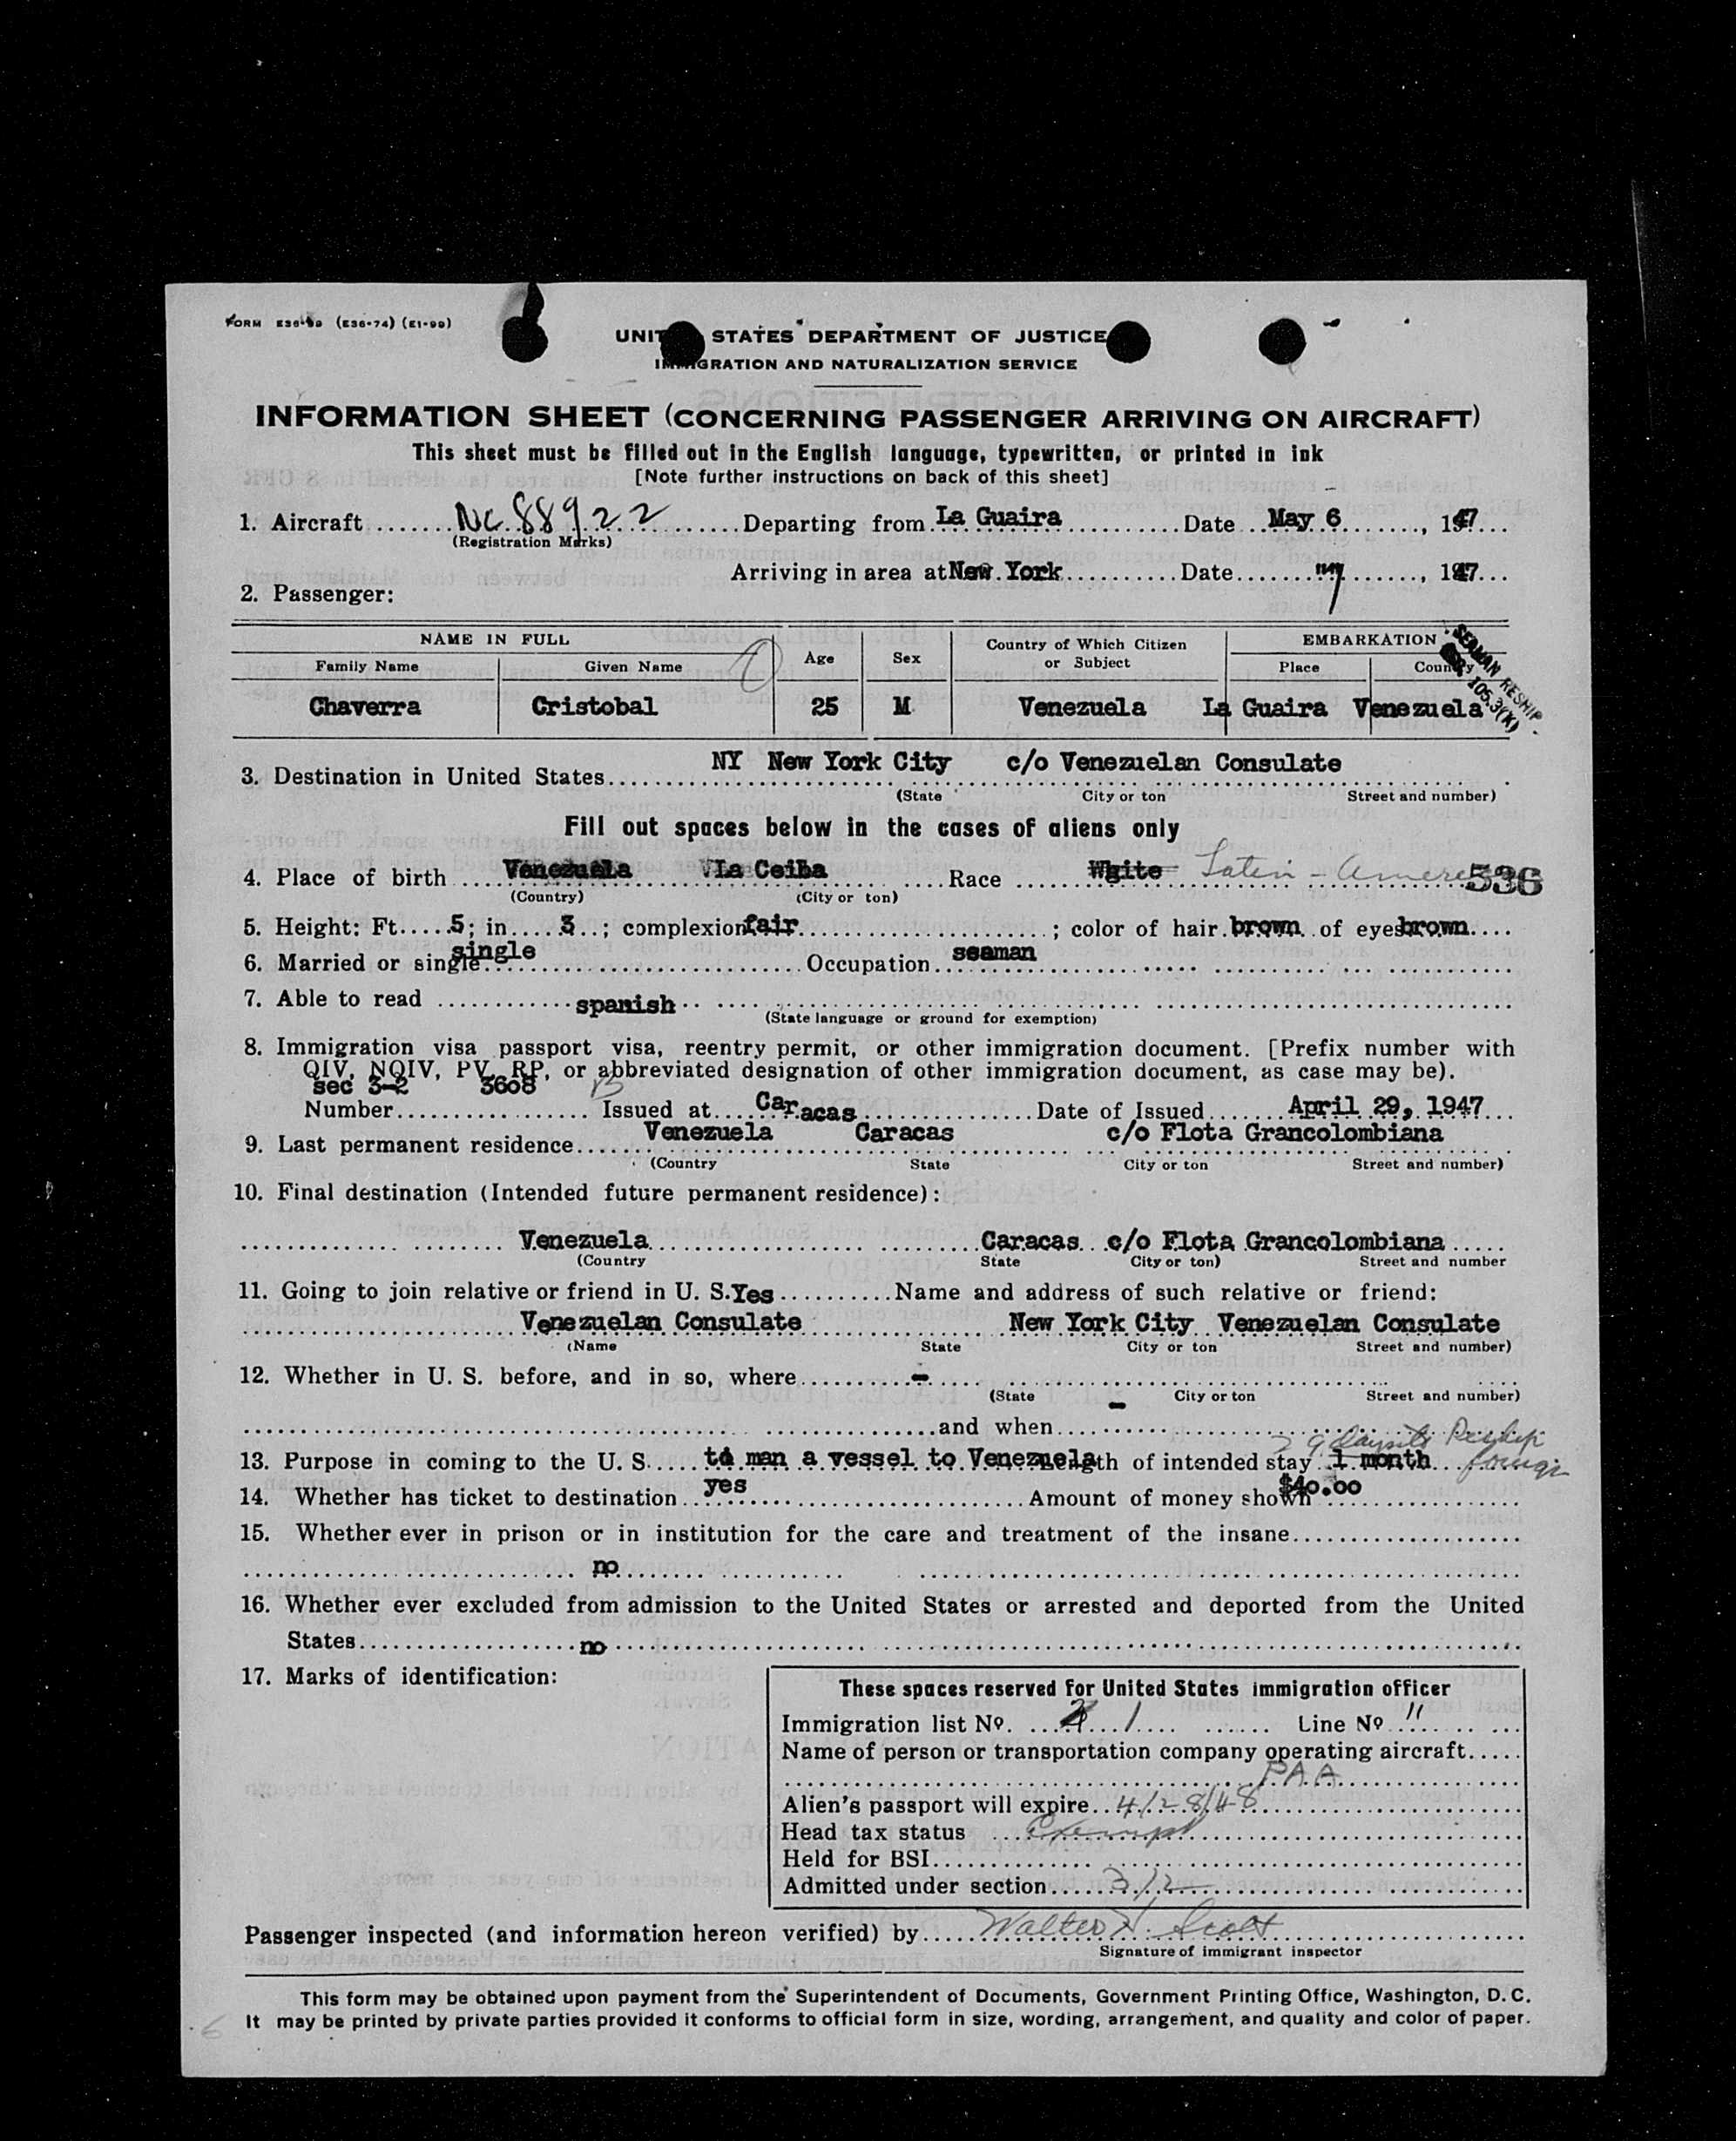 FORM E36-99 (E36-74) (E1-99)
UNITED STATES DEPARTMENT OF JUSTICE
IMMIGRATION AND NATURALIZATION SERVICE
INFORMATION SHEET (CONCERNING PASSENGER ARRIVING ON AIRCRAFT)
This sheet must be filled out in the English language, typewritten, or printed in ink
[Note further instructions on back of this sheet]
1. Aircraft NC 88922 Departing from La Guaira Date May 6, 1947
(Registration Marks)
Arriving in area at New York Date 7, 1947
2. Passenger:
NAME IN FULL Age Sex Country of Which Citizen or Subject EMBARKATION
Family Name Given Name Place Country
SEAMAN RESHIP
105.3(K)
Chaverra Cristobal 25 M Venezuela La Guaira Venezuela
3. Destination in United States NY New York City c/o Venezuelan Consulate
(State City or ton Street and number)
Fill out spaces below in the cases of aliens only
4. Place of birth Venezuela La Ceiba Race Wgite Latin-Amer 536
(Country) (City or ton)
5. Height: Ft. 5; in. 3; complexion fair; color of hair brown of eyes brown
6. Married or single single Occupation seaman
7. Able to read spanish
(State language or ground for exemption)
8. Immigration visa passport visa, reentry permit, or other immigration document. [Prefix number with
QIV, NQIV, PV, RP, or abbreviated designation of other immigration document, as case may be).
sec 3-2 3608
Number Issued at Caracas Date of Issued April 29, 1947
9. Last permanent residence Venezuela Caracas c/o Flota Grancolombiana
(Country State City or ton Street and number)
10. Final destination (Intended future permanent residence):
Venezuela Caracas c/o Flota Grancolombiana
(Country State City or ton) Street and number
11. Going to join relative or friend in U. S. Yes Name and address of such relative or friend:
Venezuelan Consulate New York City Venezuelan Consulate
(Name State City or ton Street and number)
12. Whether in U. S. before, and in so, where -
(State City or ton Street and number)
and when -
29 days to Reship foreign
13. Purpose in coming to the U. S. to man a vessel to Venezuela Length of intended stay 1 month
14. Whether has ticket to destination yes Amount of money shown $40.00
15. Whether ever in prison or in institution for the care and treatment of the insane
no
16. Whether ever excluded from admission to the United States or arrested and deported from the United
States no
17. Marks of identification:
These spaces reserved for United States immigration officer
Immigration list No. 1 Line No 11
Name of person or transportation company operating aircraft
PAA
Alien's passport will expire 4/28/48
Head tax status Exempt
Held for BSI
Admitted under section 3/2
Passenger inspected (and information hereon verified) by Walter H. Scott
Signature of immigrant inspector
This form may be obtained upon payment from the Superintendent of Documents, Government Printing Office, Washington, D. C.
It may be printed by private parties provided it conforms to official form in size, wording, arrangement, and quality and color of paper.
6